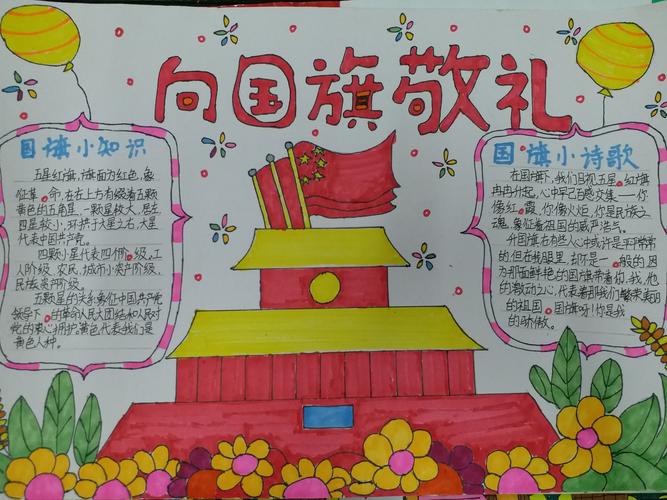 向国旗敬礼
国旗小知识
五星红旗,旗面为红色,象
征革命,在左上方有缀着五颗
黄色的五角星,一颗星较大,居左
四星较小,环拱于大星之右,大星
代表中国共产党。
四颗小星代表四个阶级,工
人阶级、农民、城市小资产阶级、
民族资产阶级。
五颗星的关系象征中国共产党
领导下的革命人民大团结和人民对
党的衷心拥护,黄色代表我们是
黄色人种。
国旗小诗歌
在国旗下,我们目视五星红旗
冉冉升起,心中早已百感交集——你
像红霞,你像火炬,你是民族之
魂,象征着祖国的威严浩气。
升国旗在有些人心中或许是平平常常
的,但在我眼里,却不是一般的,因
为那面鲜艳的国旗带着你、我、他
的激动之心,代表着那我们繁荣美丽
的祖国。国旗呀!你是我
的骄傲。